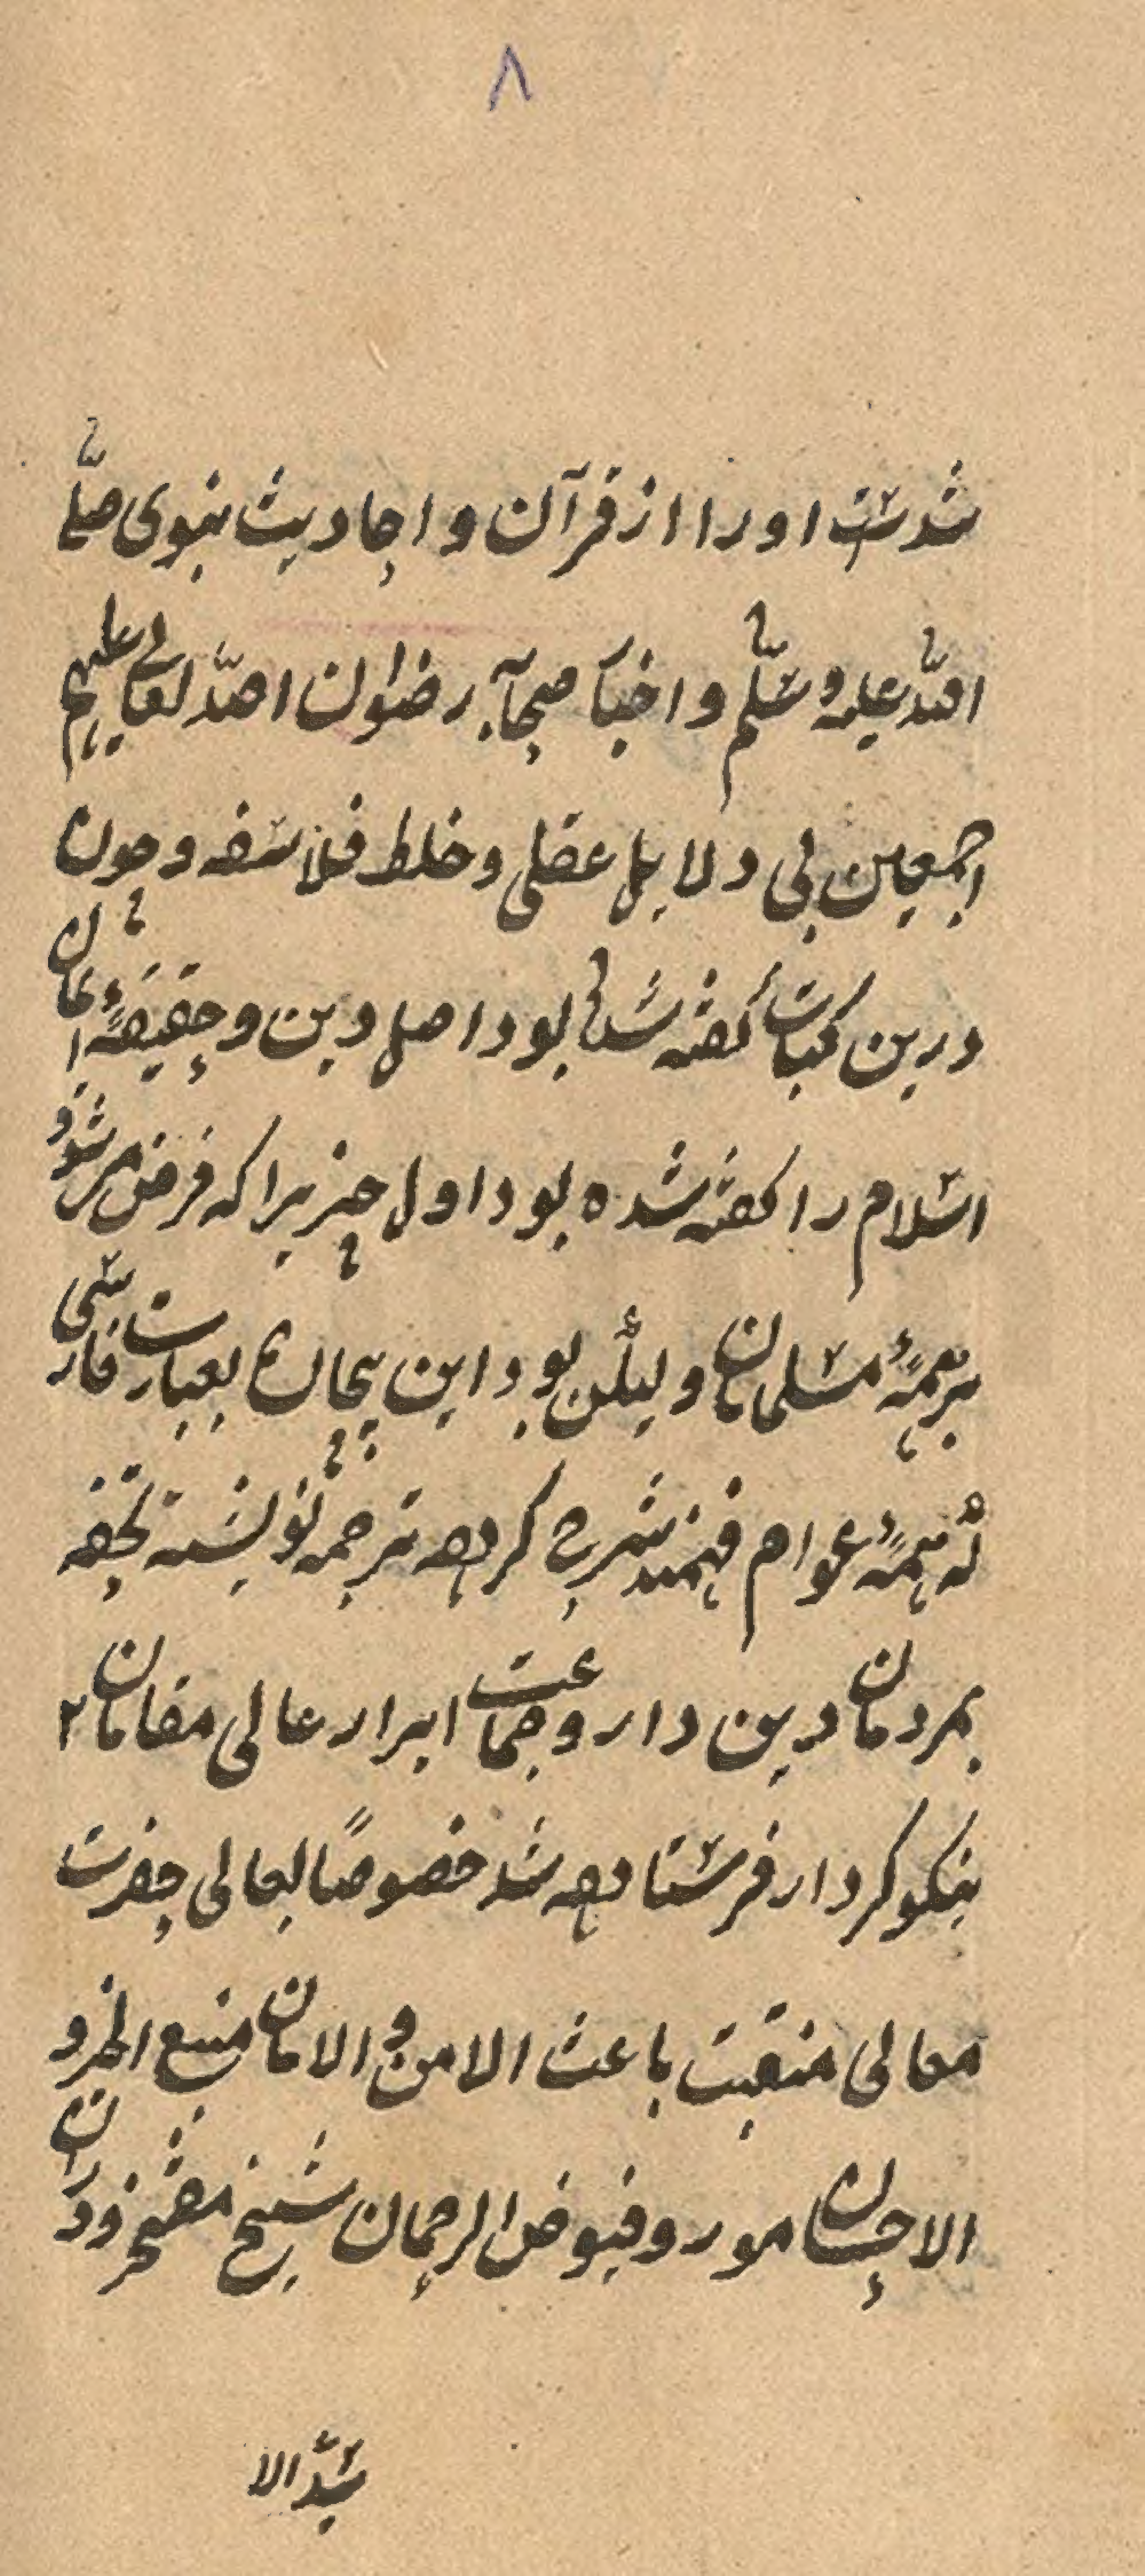 ٨
شدست اورا از قرآن و احادیث نبوی صلّی
اللّه علیه و سلّم و اخبار صحابه رضوان اللّه تعالی علیهم
اجمعین بی دلایل عقلی و خلط فلاسفه و چون
درین کتاب گفته شده بود اصل دین و حقیقهٔ ایمان
اسلام را گفته شده بود اول چیزیرا که فرض می شود
بر همهٔ مسلمانان و لیکن بود این بعبارت فارسی
که همهٔ عوام فهمند شرح کرده ترجمه نویسنه تحفه
بمردمان دین دار و جماعت ابرار عالی مقامان ۲
نیکو کردار فرستاده شد خصوصًا بعالی حضرت
معالی منقبت باعث الامن و الامان منبع الخیر و
الاحسان مورد فیوض الرحمان شیخ مفتخر دوران
سیّد الا